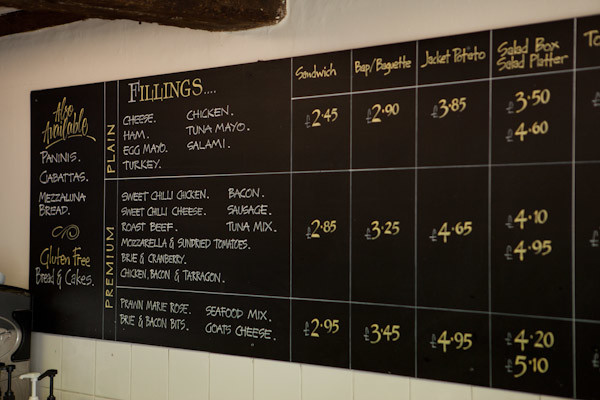 Also
Available
PANINIS.
CIABATTAS.
MEZZALUNA
BREAD.
Gluten Free
Bread & Cakes.
FILLINGS....
Sandwich
Bap/Baguette
Jacket Potato
Salad Box
Salad Platter
To
PLAIN
CHEESE. CHICKEN.
HAM. TUNA MAYO.
EGG MAYO. SALAMI.
TURKEY.
£2.45
£2.90
£3.85
£3.50
£4.60
PREMIUM
SWEET CHILLI CHICKEN. BACON.
SWEET CHILLI CHEESE. SAUSAGE.
ROAST BEEF. TUNA MIX.
MOZZARELLA & SUNDRIED TOMATOES.
BRIE & CRANBERRY.
CHICKEN, BACON & TARRAGON.
£2.85
£3.25
£4.65
£4.10
£4.95
PRAWN MARIE ROSE. SEAFOOD MIX.
BRIE & BACON BITS. GOATS CHEESE.
£2.95
£3.45
£4.95
£4.20
£5.10